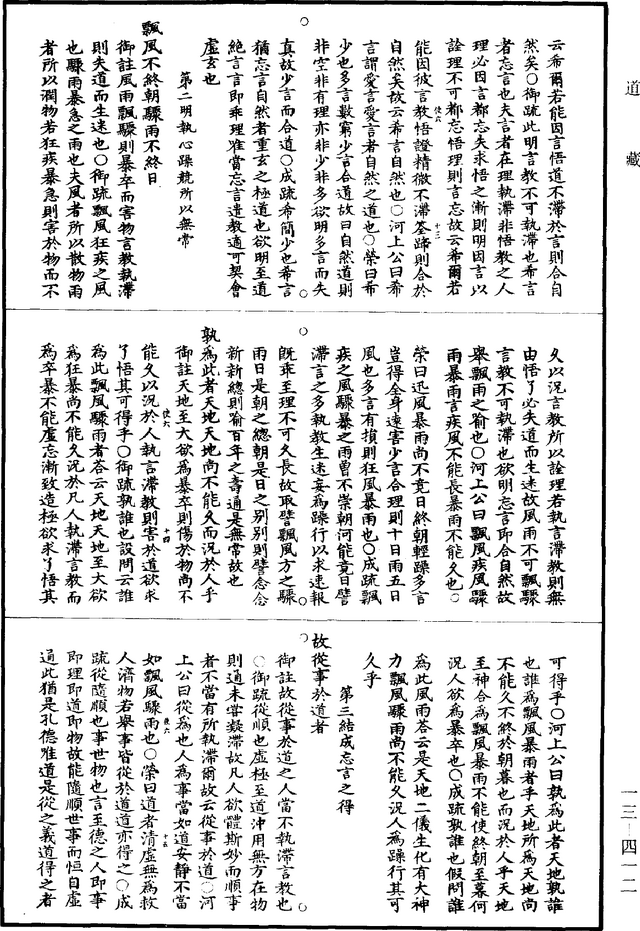 道藏
云希爾若能因言悟道不滯於言則合自
然矣〇御疏此明言教不可執滯也希言
者忘言也夫言者在理執滯非悟教之人
理必因言都忘失求悟之漸則明因言以
詮理不可都忘悟理則言忘故云希爾若
能因彼言教悟證精微不滯筌蹄則合於
自然矣故云希言自然也〇河上公曰希
言謂愛言愛言者自然之道也〇榮曰希
少也多言數窮少言合道故曰自然道則
非空非有理亦非少非多欲明多言而失
真故少言而合道〇成疏希簡少也希言
猶忘言自然者重玄之極道也欲明至道
絕言言即乖理唯當忘言遣教適可契會
虛玄也
第二明執心躁競所以無常
飄風不終朝驟雨不終日
御註風雨飄驟則暴卒而害物言教執滯
則失道而生迷也〇御疏飄風狂疾之風
也驟雨暴急之雨也夫風者所以散物雨
者所以潤物若狂疾暴急則害於物而不
久以況言教所以詮理若執言滯教則無
由悟了必失道而生迷故風雨不可飄驟
言教不可執滯也欲明忘言即合自然故
舉飄雨之喻也〇河上公曰飄風疾風驟
雨暴雨言疾風不能長暴雨不能久也〇
榮曰迅風暴雨尚不竟日終朝輕躁多言
豈得全身遠害少言合理則十日雨五日
風也多言有損則狂風暴雨也〇成疏飄
疾之風驟暴之雨曾不崇朝何能竟日譬
滯言之多執教生迷妄為躁行以求速報
既乖至理不可久長故取譬飄風方之驟
雨日是朝之總朝是日之別別則譬念念
新新總則喻百年之壽通是無常故也
孰為此者天地天地尚不能久而況於人乎
御註天地至大欲為暴卒則傷於物尚不
能久以況於人執言滯教則害於道欲求
了悟其可得乎〇御疏孰誰也設問云誰
為此飄風驟雨者答云天地天地至大欲
為狂暴尚不能久況於凡人執滯言教而
為卒暴不能虛忘漸致造極欲求了悟其
可得乎〇河上公曰孰為此者天地孰誰
也誰為飄風暴雨者乎天地所為天地尚
不能久不終於朝暮也而況於人乎天地
至神合為飄風暴雨不能使終朝至暮何
況人欲為暴卒也〇成疏孰誰也假問誰
為此風雨答云是天地二儀生化有大神
力飄風驟雨尚不能久況人為躁行其可
久乎
第三結成忘言之得
故從事於道者
御註故從事於道之人當不執滯言教也
〇御疏從順也虛極至道沖用無方在物
則通未嘗凝滯故凡人欲體斯妙而順事
者不當有所執滯爾故云從事於道〇河
上公曰從為也人為事當如道安靜不當
如飄風驟雨也〇榮曰道者清虛無為救
人濟物若舉事皆從於道道亦得之〇成
疏從隨順也事世物也言至德之人即事
即理即道即物故能隨順世事而恒自虛
通此猶是孔德唯道是從之義道得之者
一三—四一二